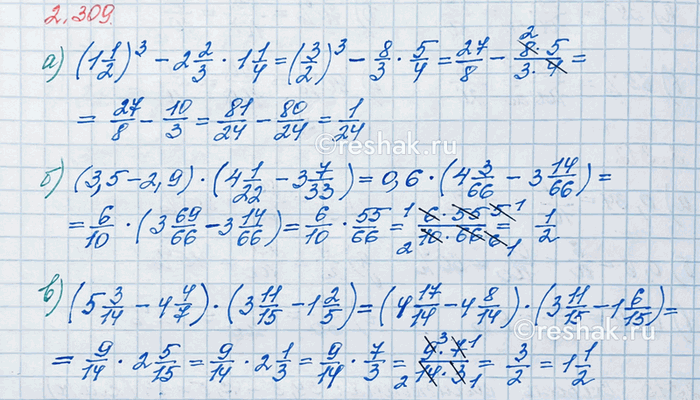 2.309.
а) (1 1/2)³ - 2 2/3 · 1 1/4 = (3/2)³ - 8/3 · 5/4 = 27/8 - 8 2 · 5 / 3 · 4 =
= 27/8 - 10/3 = 81/24 - 80/24 = 1/24
reshak.ru
б) (3,5 - 2,9) · (4 1/22 - 3 7/33) = 0,6 · (4 3/66 - 3 14/66) =
= 6/10 · (3 69/66 - 3 14/66) = 6/10 · 55/66 = 1 6 · 55 5 1 / 2 10 · 66 6 1 = 1/2
в) (5 3/14 - 4 4/7) · (3 11/15 - 1 2/5) = (4 17/14 - 4 8/14) · (3 11/15 - 1 6/15) =
= 9/14 · 2 5/15 = 9/14 · 2 1/3 = 9/14 · 7/3 = 9 3 · 7 1 / 2 14 · 3 1 = 3/2 = 1 1/2
reshak.ru